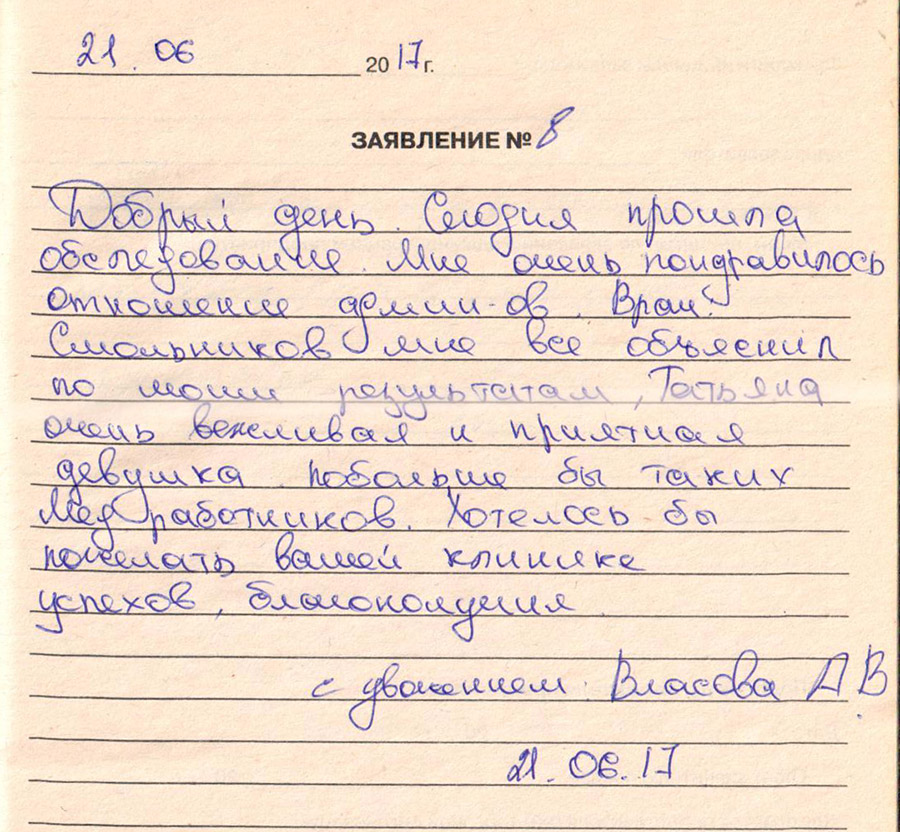 21. 06 2017г.
ЗАЯВЛЕНИЕ № 8
Добрый день. Сегодня прошла
обследование. Мне очень пондравилось
отношение админ-ов. Врач.
Смольников мне все объяснил
по моим результатам, Татьяна
очень вежливая и приятная
девушка. побольше бы таких
мед работников. Хотелось бы
пожелать вашей клинике
успехов, благополучия
с уважением. Власова А В.
21.06.17